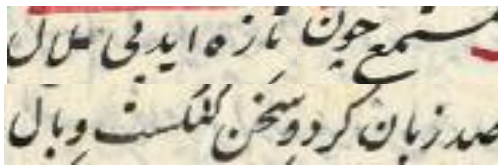 مستمع چون تازه اید بی ملال
صد زبان کرد و سخن کنکست و بال